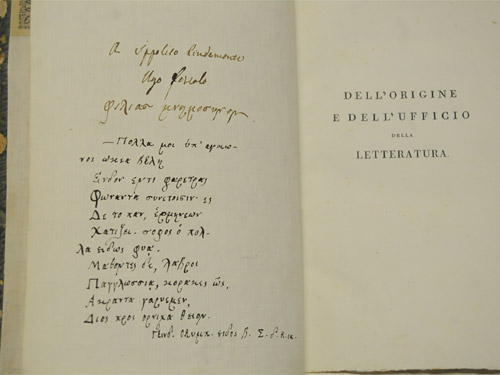 A Ippolito Pindemonte
Ugo Foscolo
φιλίας μνημόσυνον
— Πολλα μοι ὑπ' αγκω-
νος ωκεα βέλη
Ενδον εντι φαρετρας
Φωναντα συνετοισιν· ες
Δε το παν, ἑρμηνεων
Χατιζει. σοφος ὁ πολ-
λα ειδως φυᾳ.
Μαθοντες δε, λαβροι
Παγγλωσσιᾳ, κορακες ὡς,
Ακραντα γαρυεμεν,
Διος προς ορνιχα θειον.
Πινδ. Ολυμπ.
DELL'ORIGINE
E DELL'UFFICIO
DELLA
LETTERATURA.